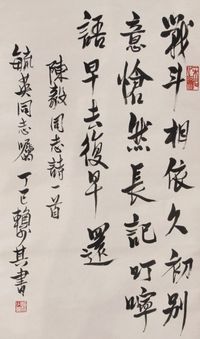 戰斗相依久初别
意愴然長記叮嚀
語早去復早還
陳毅同志詩一首
毓英同志囑 丁巳賴少其書